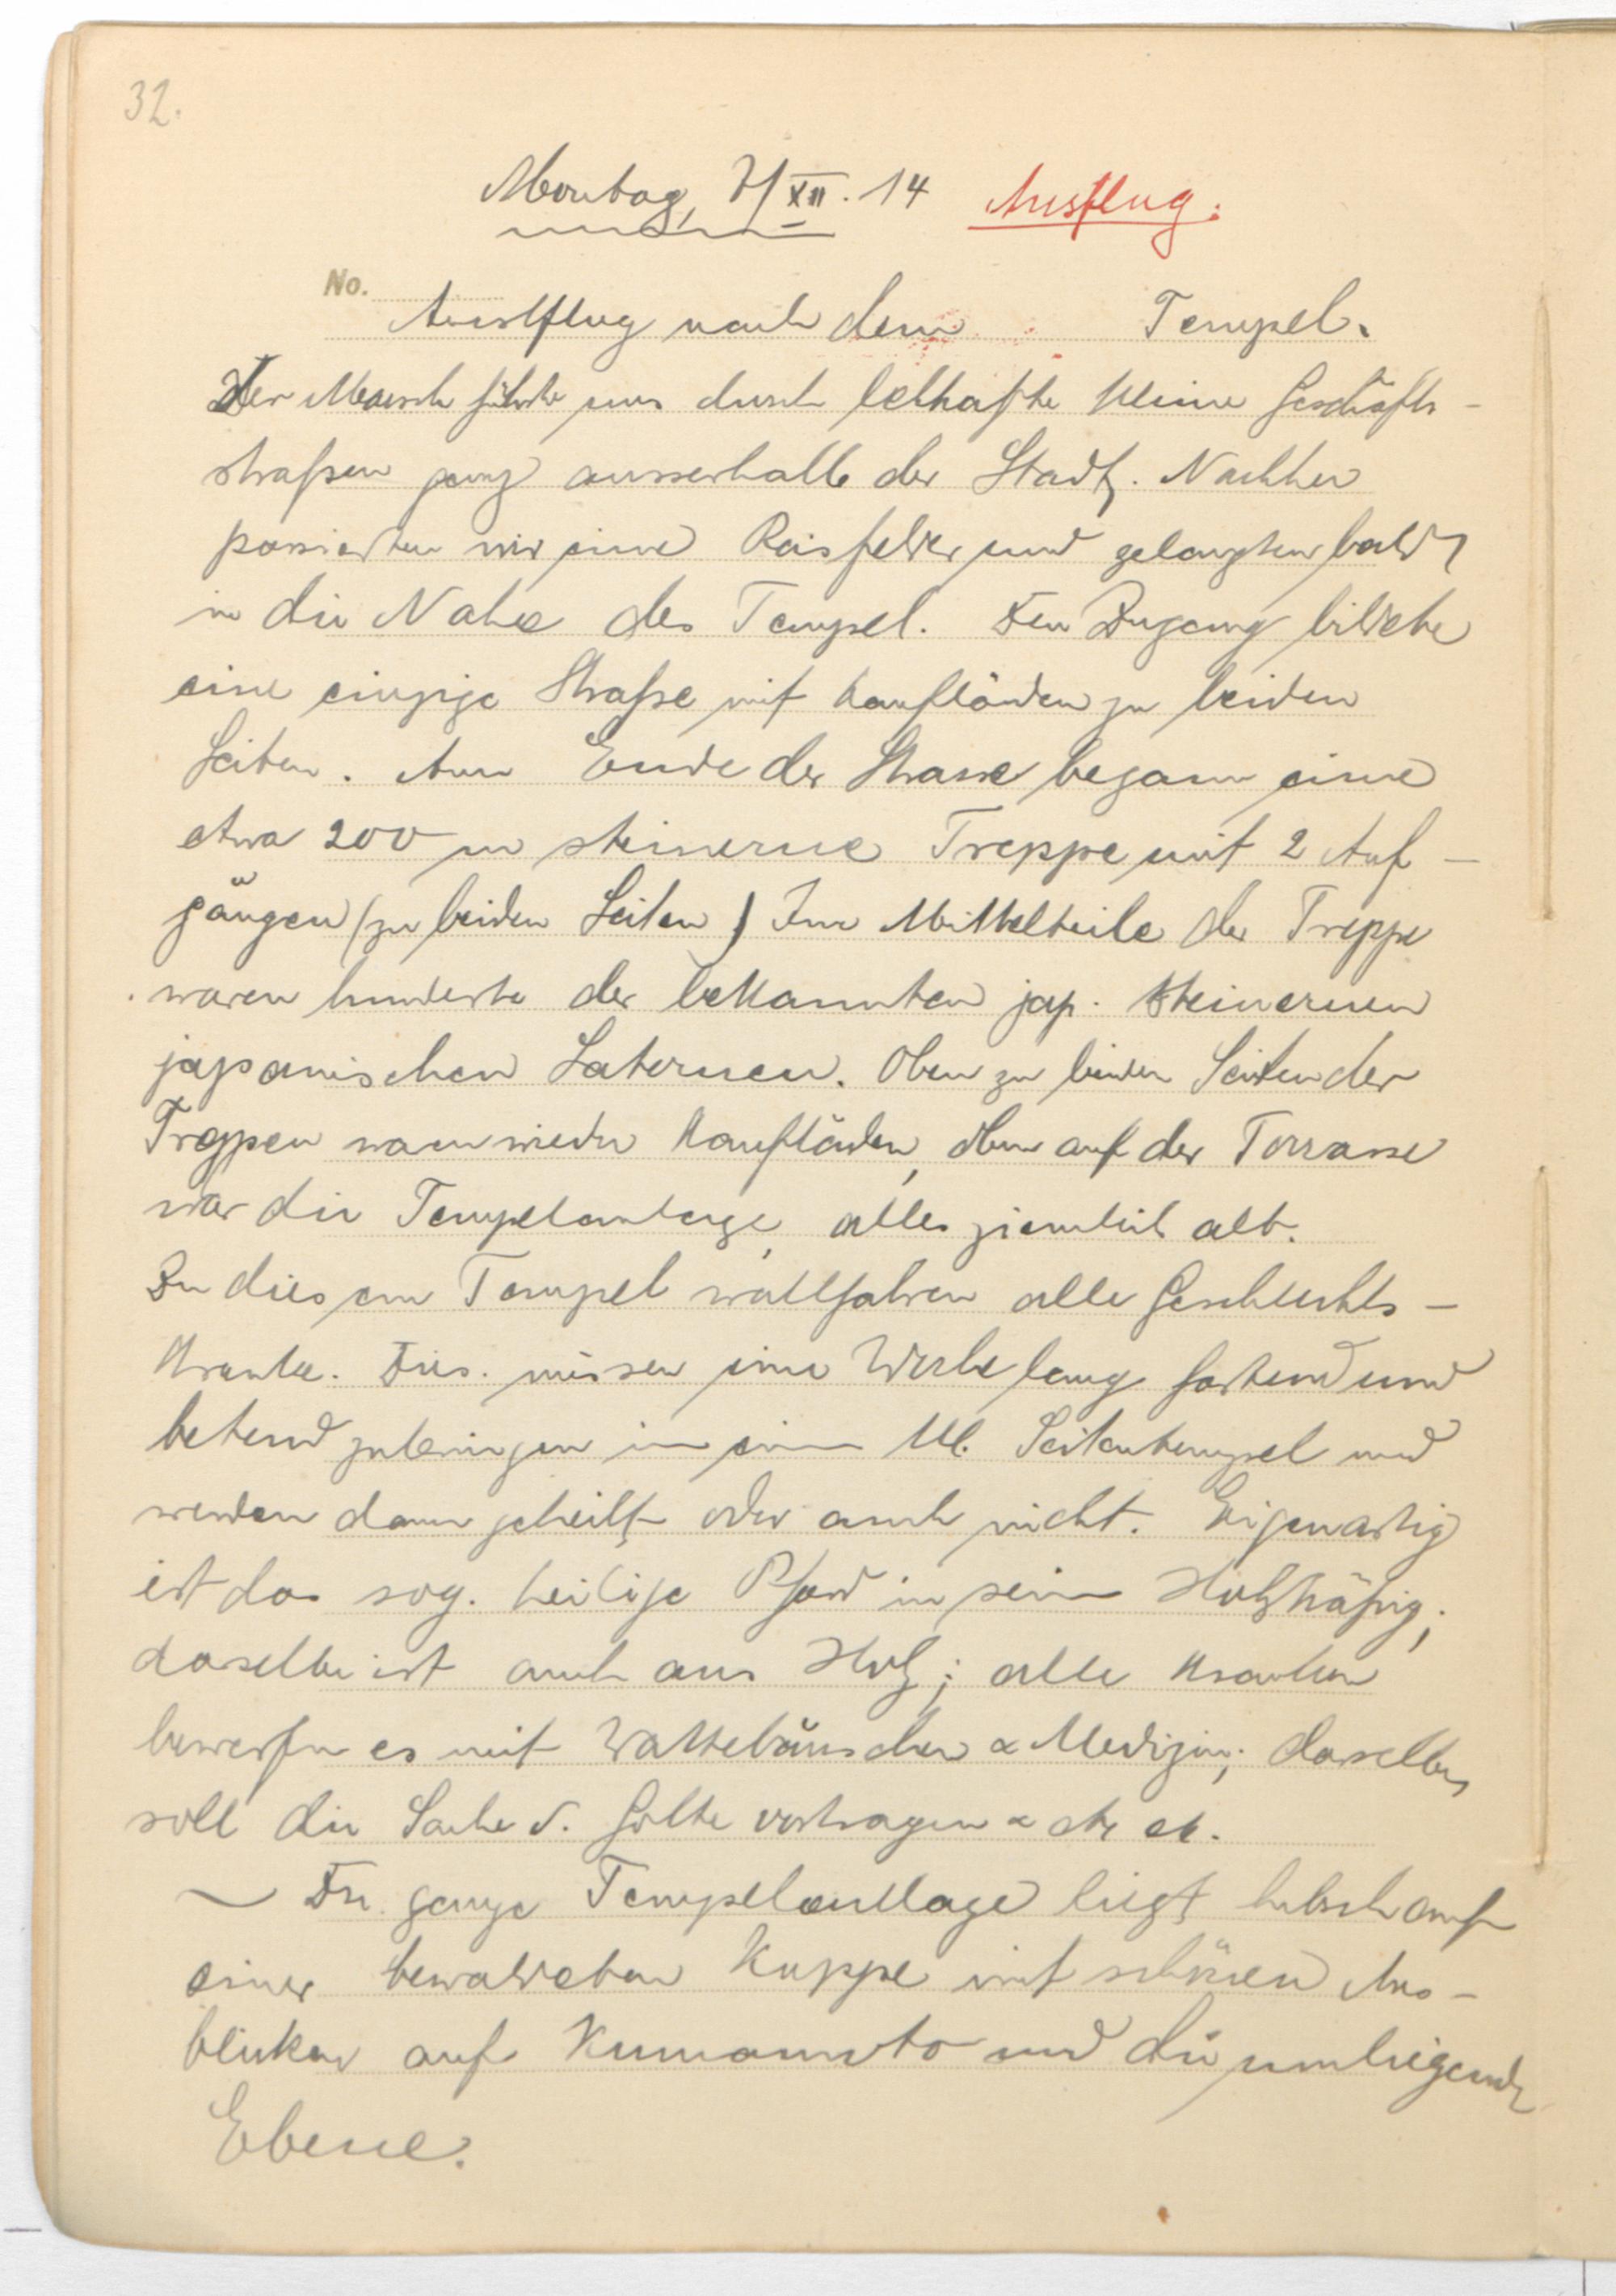 32.
Montag, 7/XII. 14 Ausflug.
No.
Ausflug nach dem Tempel.
Der Marsch führte uns durch lebhafte kleine Geschäfts-
straßen ganz ausserhalb der Stadt. Nachher
passierten wir eine Reisfelder und gelangten bald
in die Nahe des Tempel. Den Zugang bildete
eine einzige Straße mit Kaufläden zu beiden
Seiten. Am Ende der Strasse begann eine
etwa 200 m steinerne Treppe mit 2 Auf-
gängen (zu beiden Seiten) Im Mittelteile der Treppe
waren hunderte der bekannten jap. steinernen
japanischen Laternen. Oben zu beiden Seiten der
Treppen waren wieder Kaufläden, oben auf der Terrasse
war die Tempelanlage, alles ziemlich alt.
Zu diesem Tempel wallfahren alle Geschlechts-
kranke. Dies. müssen eine Woche lang fastend und
betend zubringen in einem kl. Seitentempel und
werden dann geheilt oder auch nicht. Eigenartig
ist das sog. heilige Pferd in seinem Holzkäfig;
dasselbe ist auch aus Holz; alle Kranken
bewerfen es mit Wattebäuschen & Medizin; dasselbe
soll die Sache d. Gotte vortragen & etc etc.
– Die ganze Tempelanlage liegt hübsch auf
einer bewaldeten Kuppe mit schönen Aus-
blicken auf Kumamoto und die umliegende
Ebene.